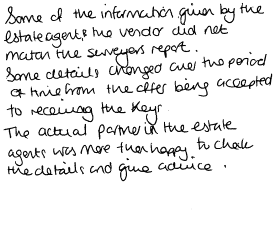 Some of the information given by the
estate agent, & the vendor did not
match the surveyors report.
Some details changed over the period
of time from the offer being accepted
to receiving the keys.
The actual partner in the estate
agents was more than happy to check
the details and give advice.